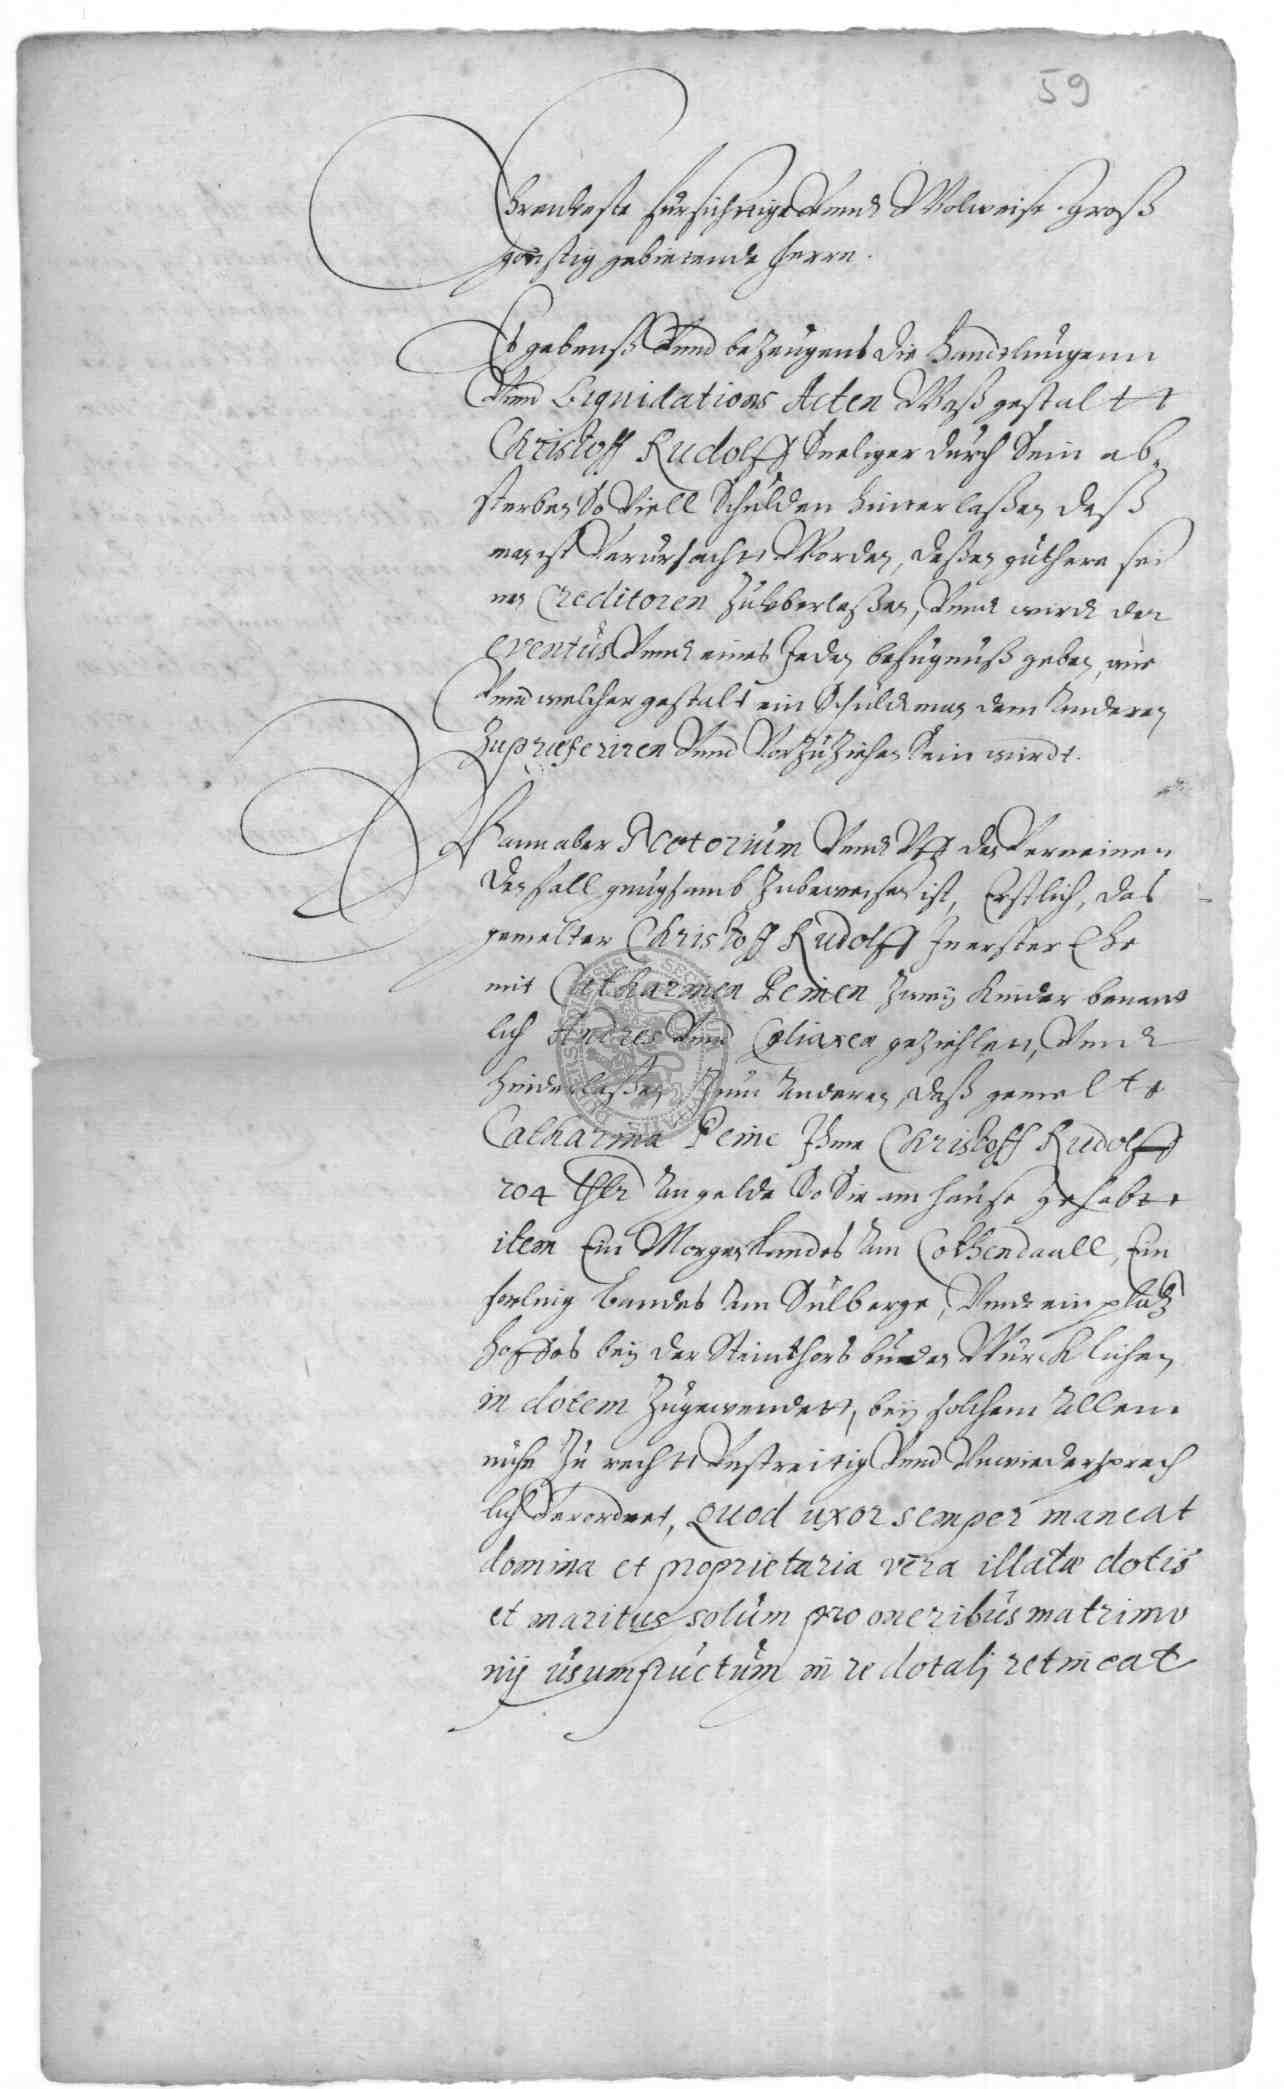 59
Ehrenveste Fürsichtige Vnnd Wolweise Groß
gönstig gebietende Herrn.
Es gebenß Vnnd bezeugens die Handelungenn
Vnnd Liquidations Acten Waß gestaltt
Christoff Rudolff Seeliger durch Sein ab,
sterben So Viell Schulden hinterlaßen, daß
man ist Verursacht Worden, deßen güthere sei
nen Creditoren Zuüberlaßen, Vnnd wirdt der
eventus Vnnd eines Jeden befugnuß geben, wie
Vnnd welcher gestalt ein Schuldman dem Anderen
Zupræferiren Vnnd VorZuZiehen Sein wirdt.
Wann aber Notorium Vnnd Vff den Verneinen
den fall gnugsamb Zubeweisen ist, Erstlich, das
gemelter Christoff Rudolff In erster Ehe
mit Catharinen Peinen Zwey Kinder benant
lich Andres Vnnd geziehlett, Vnnd
hinderlaßen Zum Anderen, daß gemelte
Catharina Peine Ihme Christoff Rudolff
204 thlr An gelde So Sie am Hause gehabtt
item Ein Morgen Landes Am Cothendaall, Ein
forling Landes Am Sülberge, Vnnd ein platz
Hoffes bey der Steinthors Würcklichen
in dotem Zugewendett, bey solchem Allem
nuhn Zu recht Vnstreitig Vnnd Vnwiedersprech
lich Verordnet, Quod uxor semper maneat
domina et proprietaria vera illatæ dotis
et maritus solum pro oneribus matrimo
nij usumfructum in re dotalj retineat